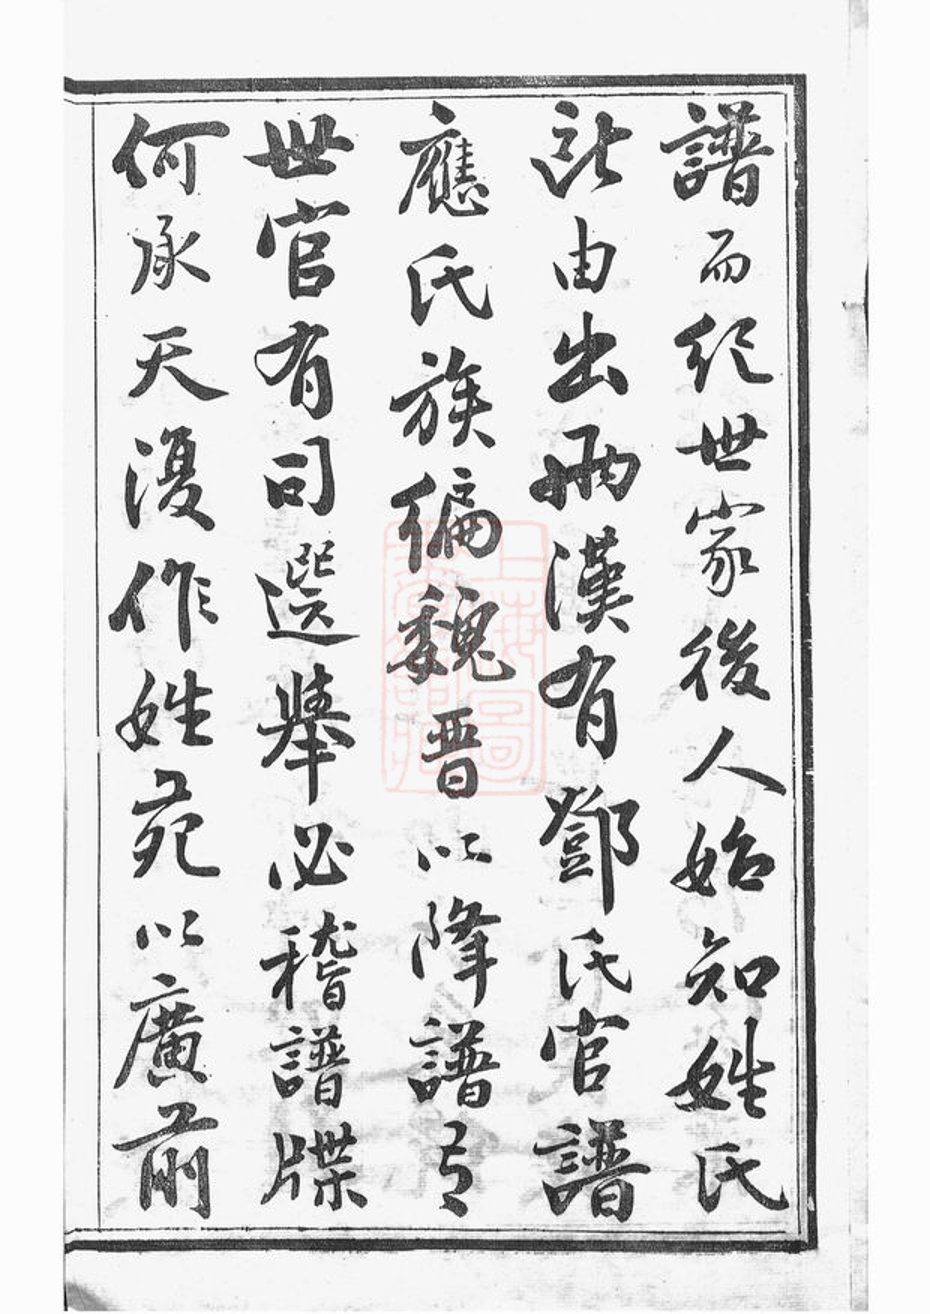 譜而紀世家後人始知姓氏
所由出兩漢有鄧氏官譜
應氏族編魏晉以降譜有
世官有司選舉必稽譜牒
何承天復作姓苑以廣前